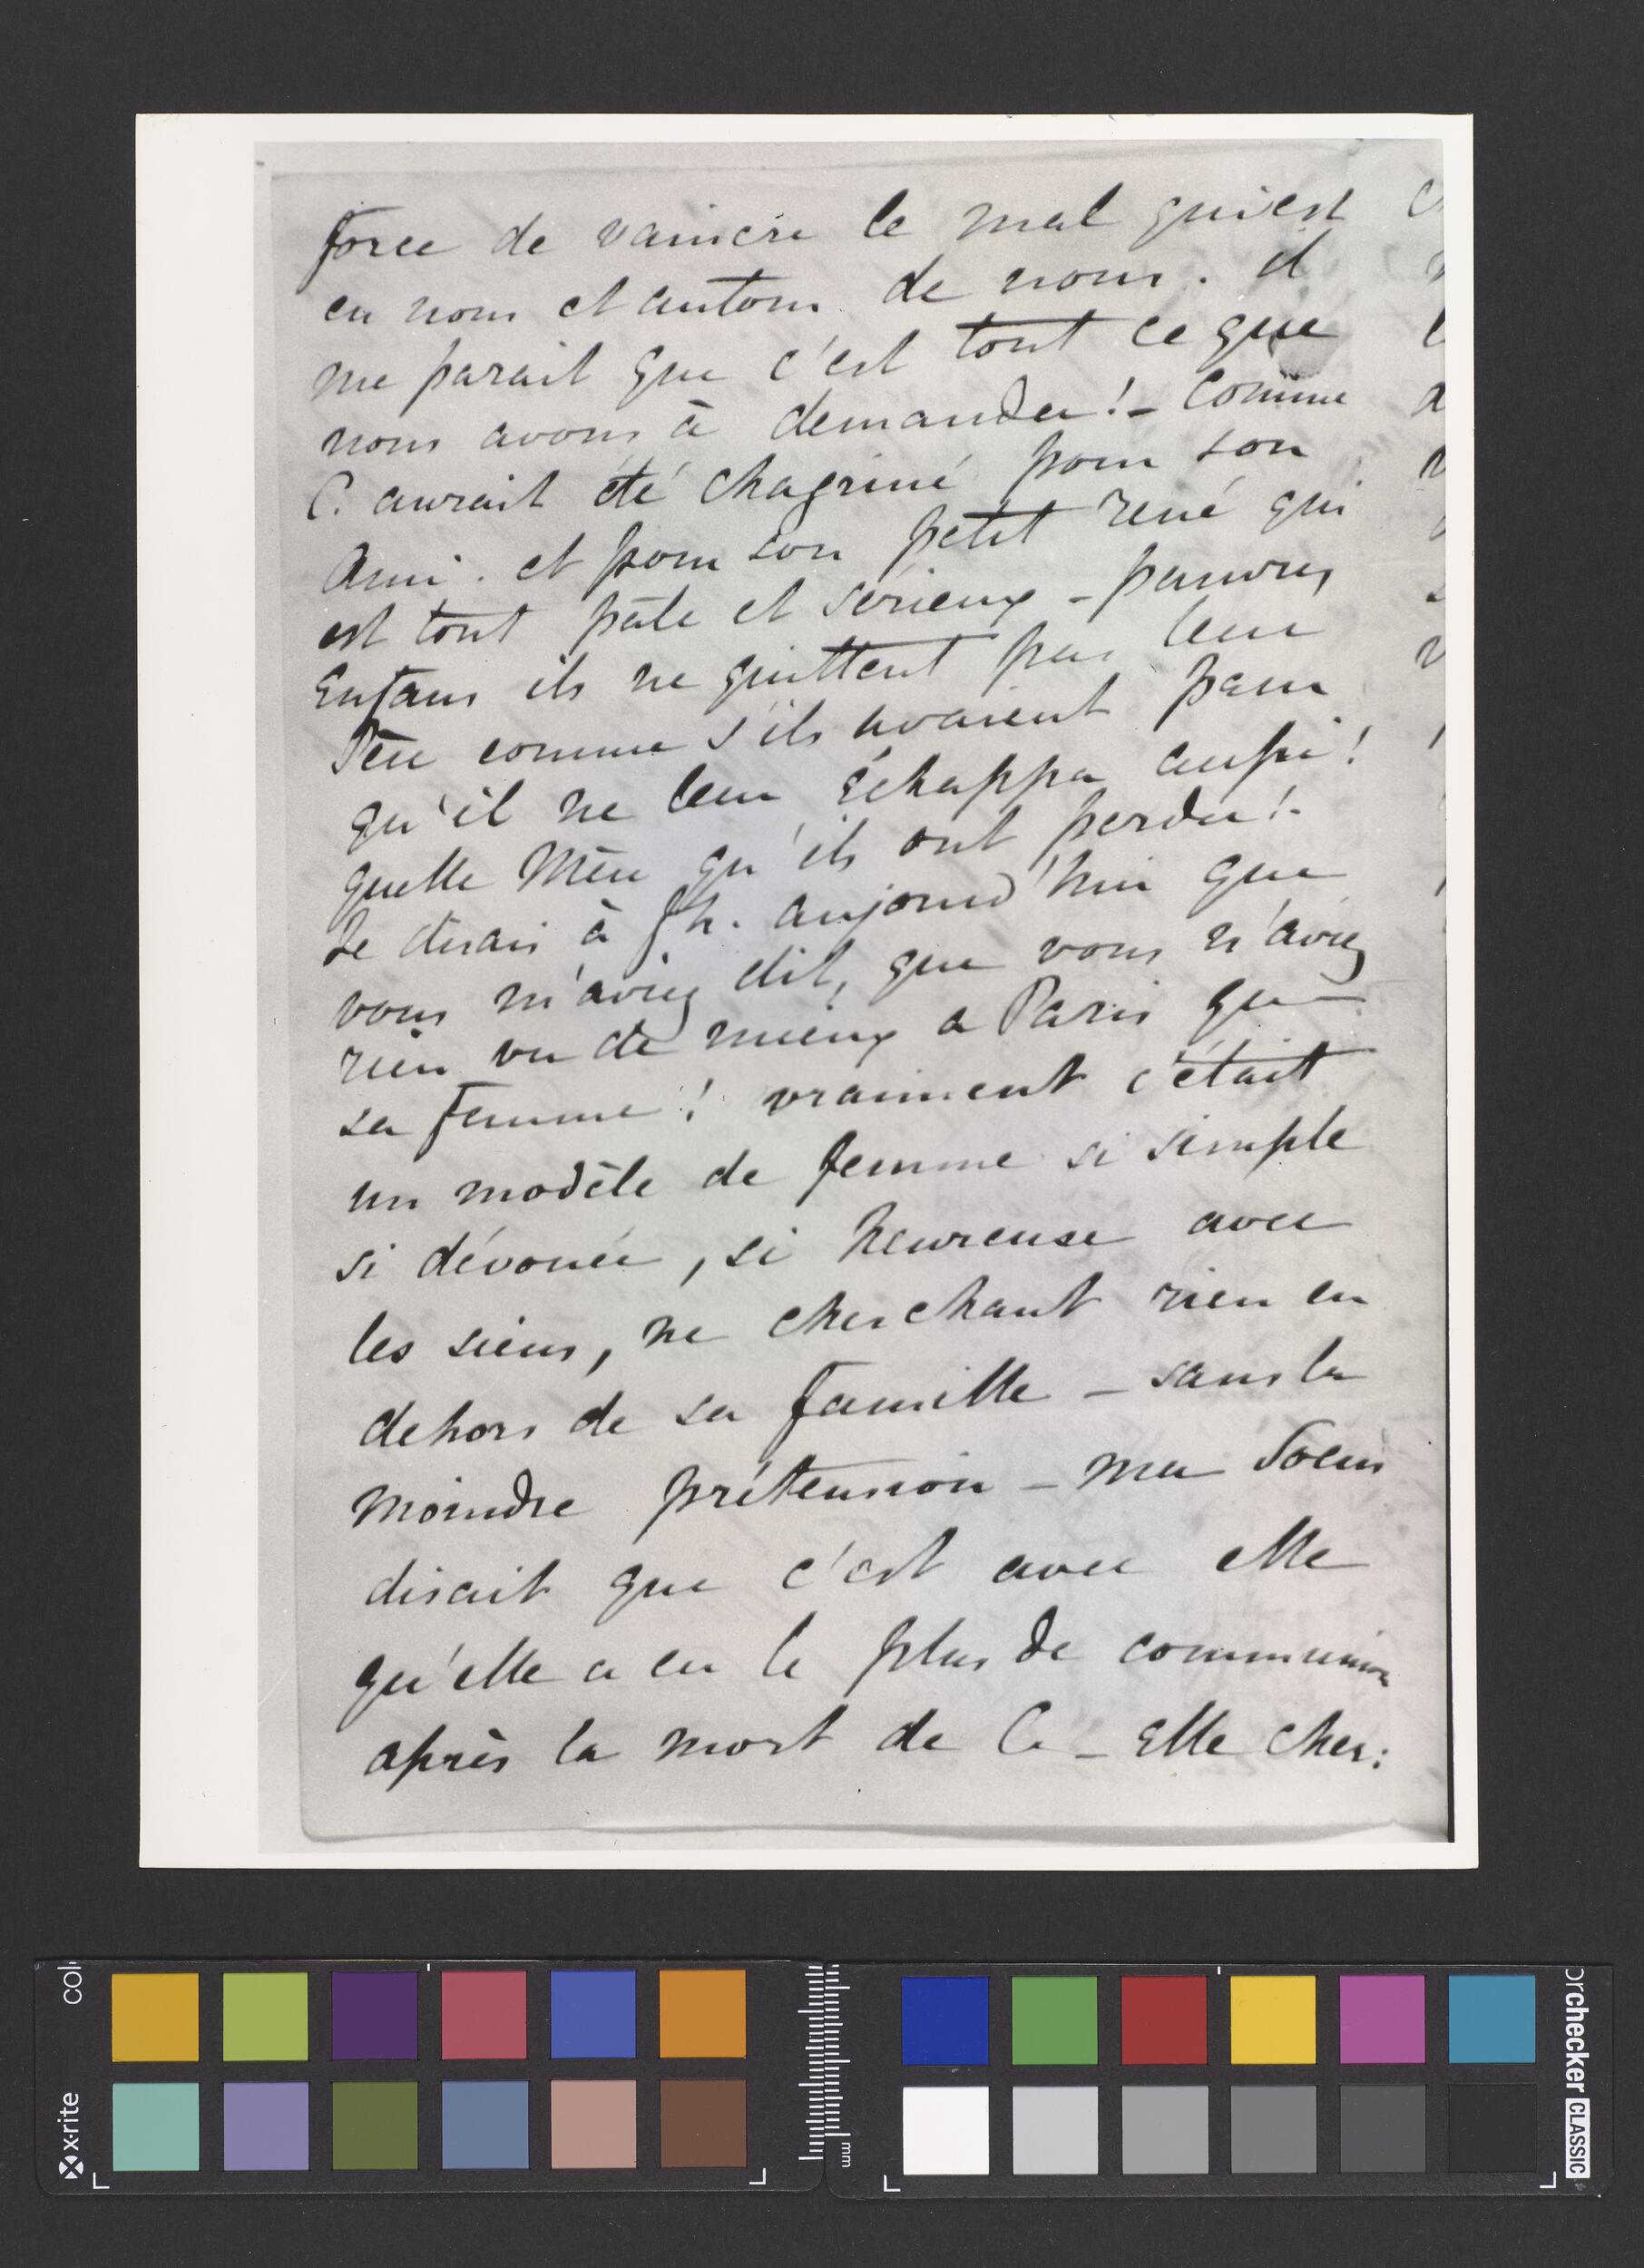 force de vaincre le mal qui est
en nous et autour de nous. il
me parait que c'est tout ce que
nous avons à demander! - Comme
C. aurait été chagriné pour son
Ami. et pour son petit rené qui
est tout pâle et sérieux - pauvres
Enfans ils ne quittent pas leur
Père comme s'ils avaient peur
qu'il ne leur échappa aussi!
quelle Mère qu'ils ont perdu! -
Je disais à Ph. aujourd'hui que
vous m'aviez dit, que vous n'aviez
rien vu de mieux a Paris que
sa femme! vraiment c'était
un modèle de femme si simple
si dévouée, si heureuse avec
les siens, ne cherchant rien en
dehors de sa famille - sans la
moindre prétension - ma Soeur
disait que c'est avec elle
qu'elle a eu le plus de communion
après la mort de C. - Elle cher:
colo
x-rite
mm
orchecker CLASSIC